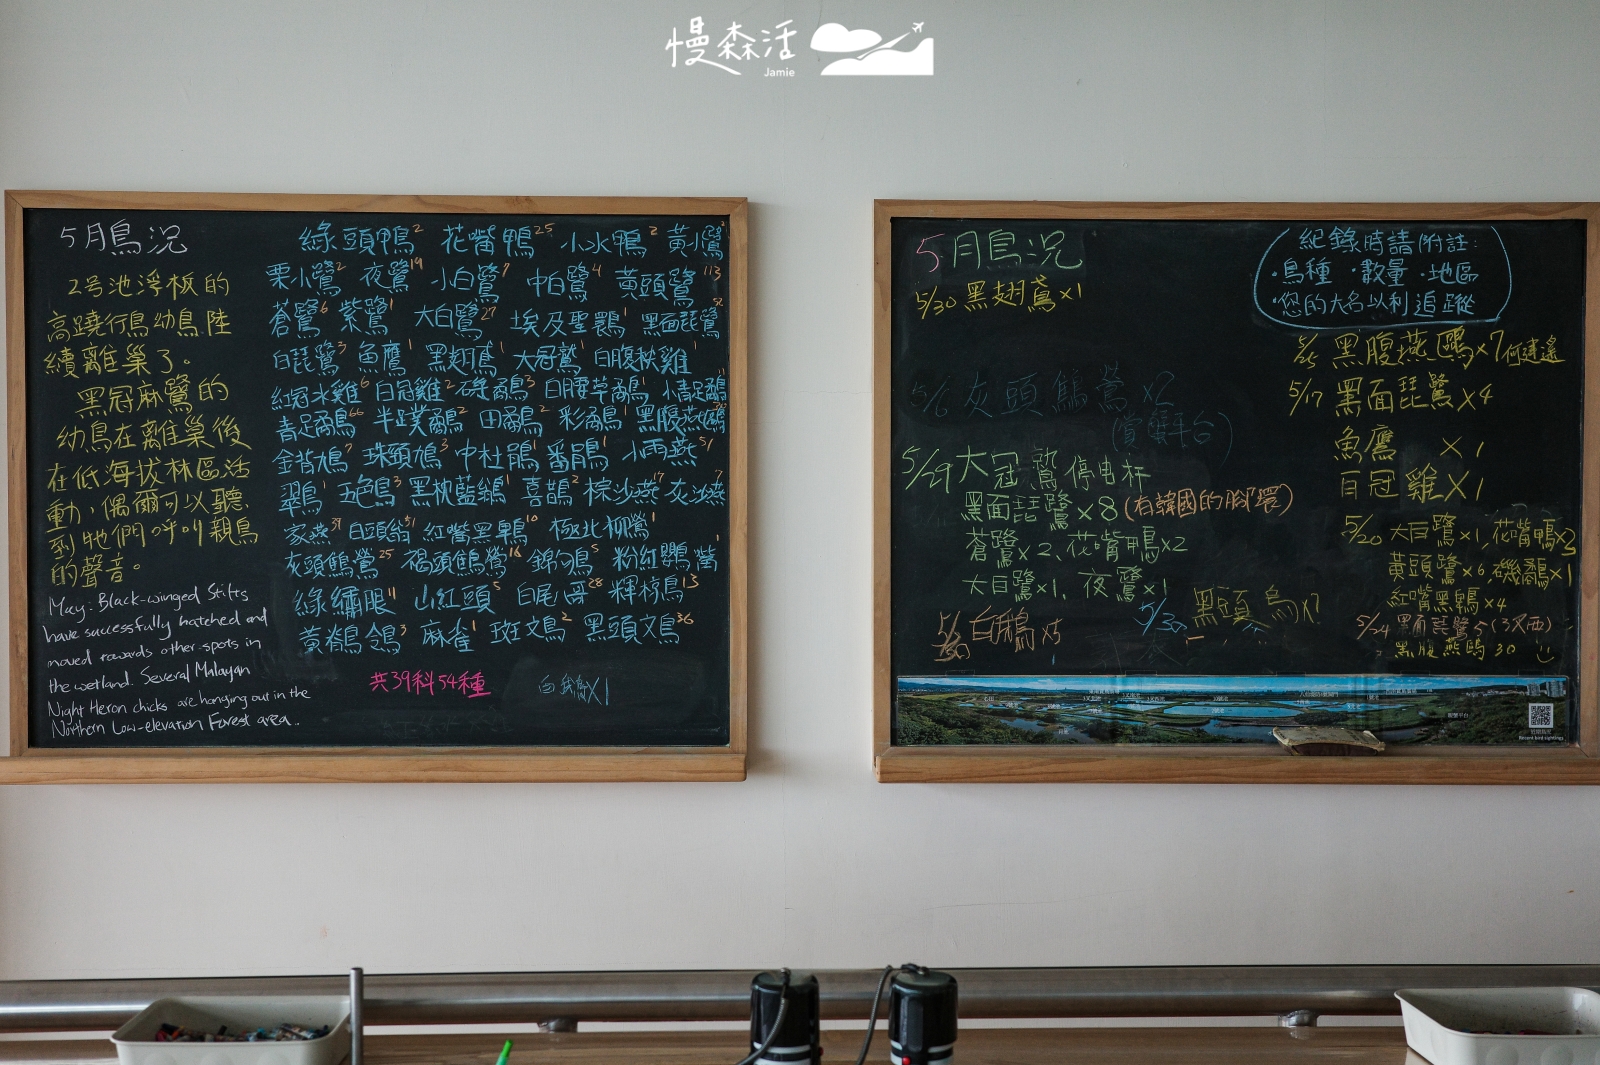 慢森活
Jamie
5月鳥況
2号池浮板的
高蹺行鳥幼鳥陸
續離巢了。
黑冠麻鷺的
幼鳥在離巢後
在低海拔林區活
動,偶爾可以聽
到牠們呼叫親鳥
的聲音。
May: Black-winged Stilts
have successfully hatched and
moved towards other spots in
the wetland. Several Malayan
Night Heron chicks are hanging out in the
Northern Low-elevation Forest area..
綠頭鴨2 花嘴鴨25 小水鴨2 黃小鷺
栗小鷺2 夜鷺19 小白鷺7 中白鷺4 黃頭鷺113
蒼鷺6 紫鷺1 大白鷺27 埃及聖䴉1 黑面琵鷺52
白琵鷺3 魚鷹1 黑翅鳶1 大冠鷲1 白腹秧雞1
紅冠水雞6 白冠雞2 磯鷸3 白腰草鷸1 小青足鷸
青足鷸66 半蹼鷸2 田鷸2 彩鷸1 黑腹燕鷗
金背鳩7 珠頸鳩3 中杜鵑1 番鵑1 小雨燕51
翠鳥1 五色鳥3 黑枕藍鶲1 喜鵲2 棕沙燕17 灰沙燕
家燕39 白頭翁51 紅嘴黑鵯10 極北柳鶯1
灰頭鷦鶯25 褐頭鷦鶯16 錦鴝5 粉紅鸚嘴1
綠繡眼11 山紅頭5 白尾八哥28 輝椋鳥13
黃脊鳥鴒3 麻雀1 斑文鳥2 黑頭文鳥36
共39科54種
白鵝X1
5月鳥況
紀錄時請附註:
·鳥種 ·數量 ·地區
·您的大名以利追蹤
5/30 黑翅鳶x1
5/6 灰頭鷦鶯x2
(賞蟹平台)
5/29 大冠鷲 停电杆
黑面琵鷺x8 (有韓國的腳環)
蒼鷺x2、花嘴鴨x2
大白鷺x1、夜鷺x1
白鵝x5
5/30
黑腹燕鷗x7
5/17 黑面琵鷺x4
魚鷹 x1
白冠雞x1
5/20 大白鷺x1、花嘴鴨x3
黃頭鷺x6、磯鷸x1
紅嘴黑鵯x4
5/24 黑面琵鷺5
黑腹燕鷗30
Recent bird sightings